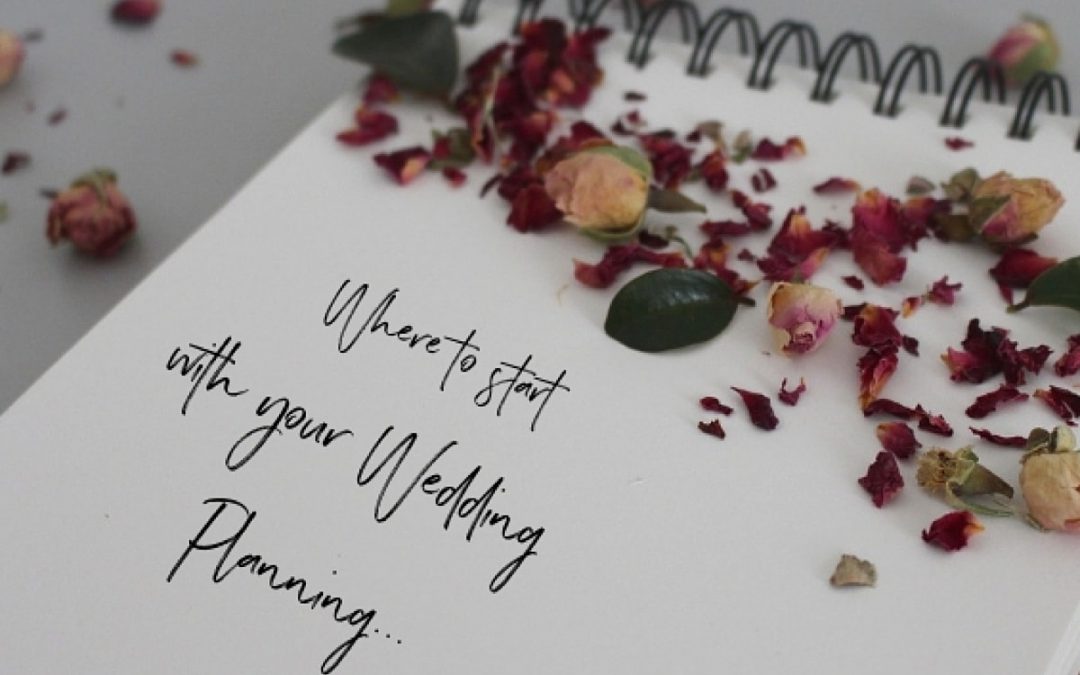 Where to start
with your Wedding
Planning...